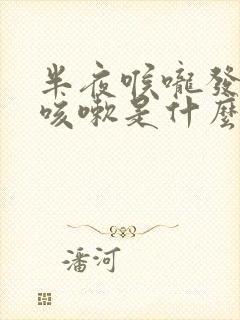 半夜喉嚨發
咳嗽是什麼
潘河